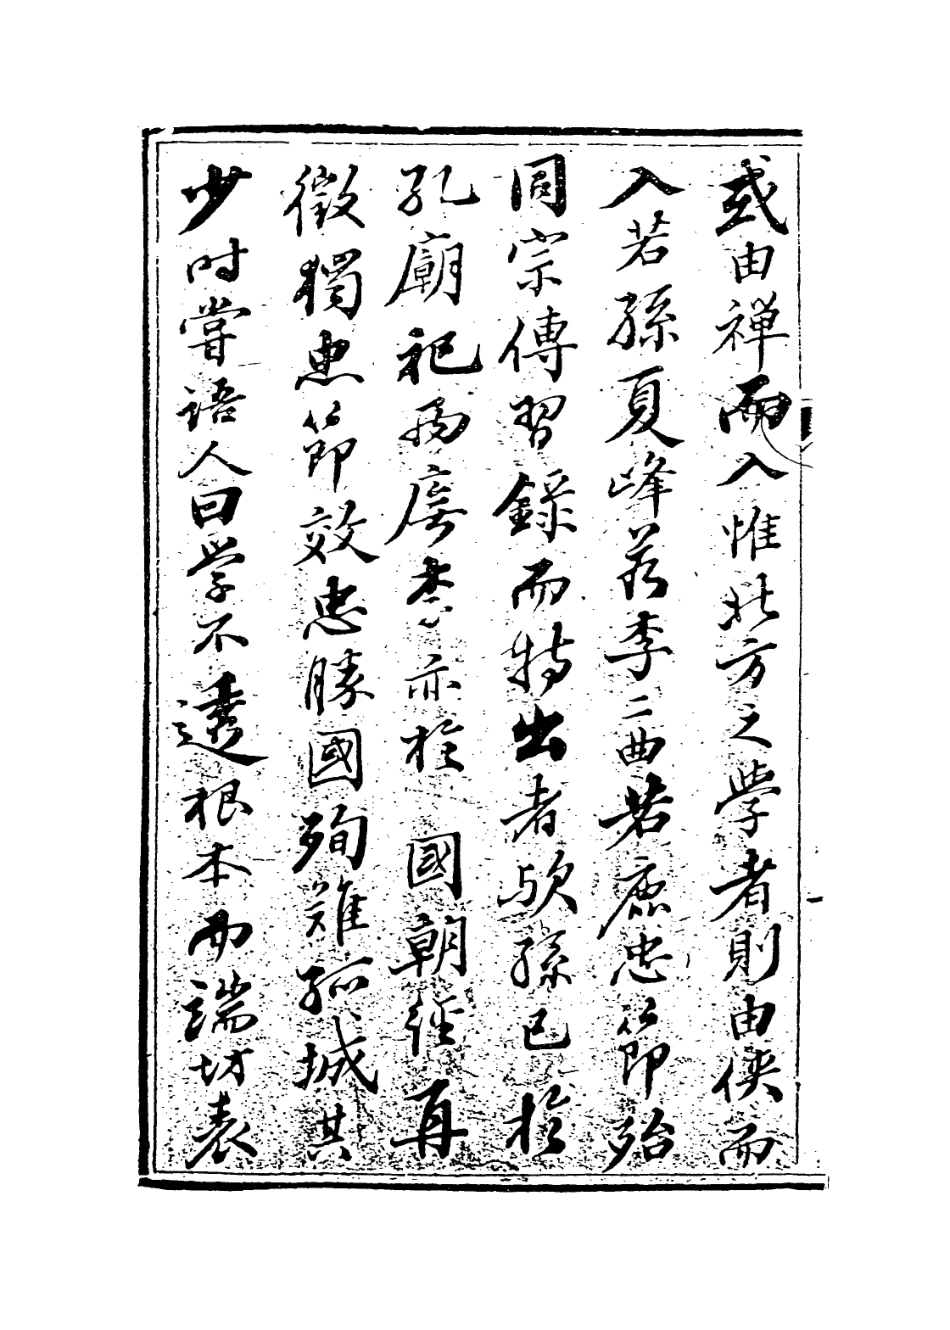 或由禅而入惟北方之学者則由俠而
入若孫夏峰若李二曲若鹿忠節殆
同宗傳習錄而特出者欤孫已於
孔廟祀為李亦於 國朝經再
徵獨忠節效忠勝國殉難孤城其
少时嘗语人曰学不透根本而端坊表